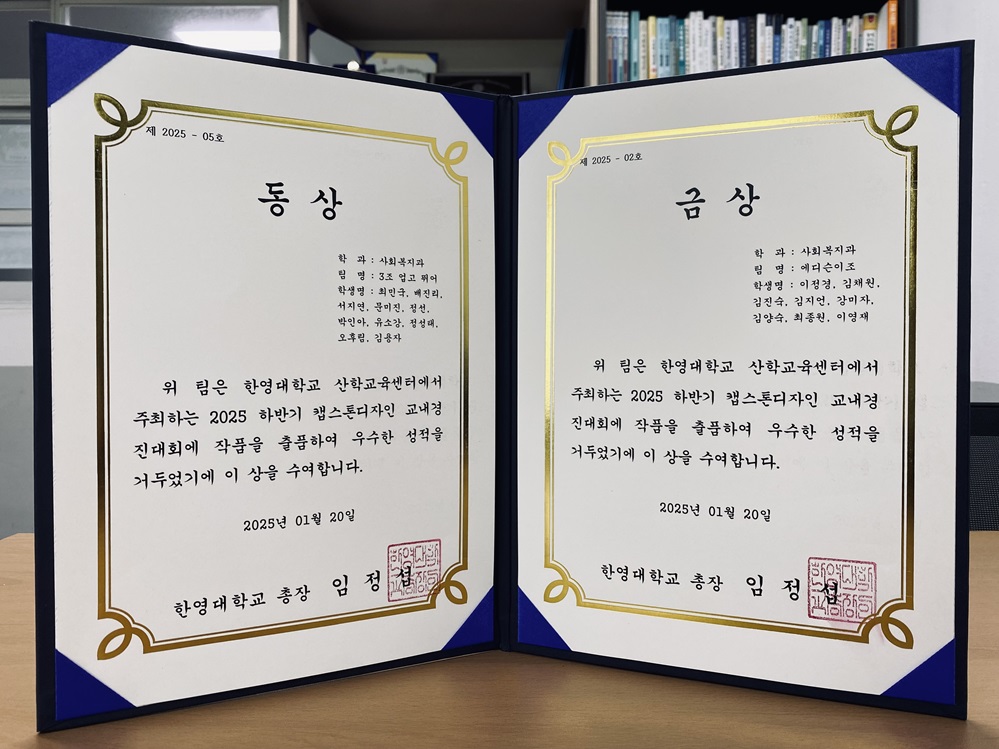 제 2025 - 05호
동 상
학 과 : 사회복지과
팀 명 : 3조 업고 뛰어
학생명 : 최민국, 배진리,
서지연, 문미진, 정선,
박인아, 유소강, 정성태,
오후림, 김용자
위 팀은 한영대학교 산학교육센터에서
주최하는 2025 하반기 캡스톤디자인 교내경
진대회에 작품을 출품하여 우수한 성적을
거두었기에 이 상을 수여합니다.
2025년 01월 20일
한영대학교 총장 임 정 섭
제 2025 - 02호
금 상
학 과 : 사회복지과
팀 명 : 에디슨이조
학생명 : 이정경, 김채원,
김진숙, 김지언, 강미자,
김양숙, 최종원, 이영재
위 팀은 한영대학교 산학교육센터에서
주최하는 2025 하반기 캡스톤디자인 교내경
진대회에 작품을 출품하여 우수한 성적을
거두었기에 이 상을 수여합니다.
2025년 01월 20일
한영대학교 총장 임 정 섭